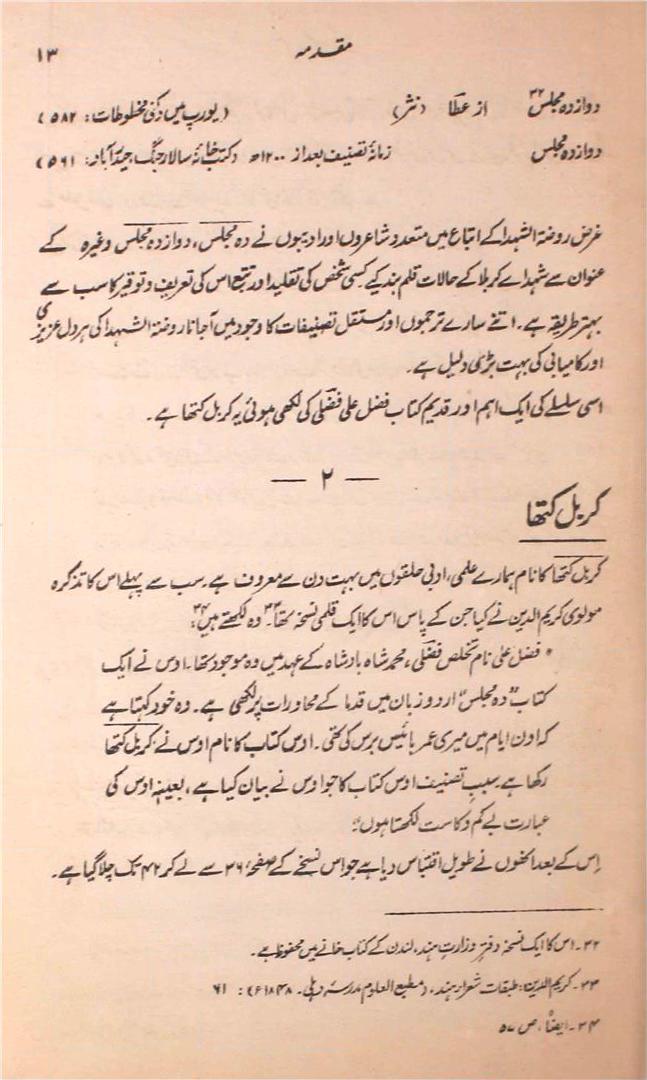 مقدمہ ۱۳
دوازدہ مجلس۳۲ از عطا (نثر) (یورپ میں دکنی مخطوطات: ۵۸۲)
دوازدہ مجلس زمانۂ تصنیف بعد از ۱۲۰۰ھ (کتب خانۂ سالار جنگ، حیدرآباد: ۵۶۱)
غرض روضۃ الشہدا کے اتباع میں متعدد شاعروں اور ادیبوں نے دہ مجلس، دوازدہ مجلس وغیرہ کے
عنوان سے شہداے کربلا کے حالات قلم بند کیے کسی شخص کی تقلید اور تتبع اس کی تعریف و توقیر کا سب سے
بہتر طریقہ ہے۔ اتنے سارے ترجموں اور مستقل تصنیفات کا وجود میں آجانا روضۃ الشہدا کی ہر دل عزیزی
اور کامیابی کی بہت بڑی دلیل ہے۔
اسی سلسلے کی ایک اہم اور قدیم کتاب فضل علی فضلی کی لکھی ہوئی یہ کربل کتھا ہے۔
— ۲ —
کربل کتھا
کربل کتھا کا نام ہمارے علمی، ادبی حلقوں میں بہت دن سے معروف ہے۔ سب سے پہلے اس کا تذکرہ
مولوی کریم الدین نے کیا جن کے پاس اس کا ایک قلمی نسخہ تھا۔۳۳ وہ لکھتے ہیں۳۴:
"فضل علی نام تخلص فضلی، محمد شاہ بادشاہ کے عہد میں وہ موجود تھا۔ اوس نے ایک
کتاب "دہ مجلس" اردو زبان میں قدما کے محاورات پر لکھی ہے۔ وہ خود کہتا ہے
کہ اون ایام میں میری عمر بائیس برس کی تھی۔ اوس کتاب کا نام اوس نے کربل کتھا
رکھا ہے۔ سببِ تصنیف اوس کتاب کا جو اوس نے بیان کیا ہے، بعینہٖ اوس کی
عبارت بے کم و کاست لکھتا ہوں":
اِس کے بعد انھوں نے طویل اقتباس دیا ہے جو اس نسخے کے صفحہ ۳۶ سے لے کر ۴۲ تک چلا گیا ہے۔
۳۲۔ اس کا ایک نسخہ دفترِ وزارتِ ہند، لندن کے کتاب خانے میں محفوظ ہے۔
۳۳۔ کریم الدین: طبقات شعراء ہند، (مطبع العلوم مدرسہ دہلی۔ ۱۸۴۸ء): ۶۱
۳۴۔ ایضاً، ص ۵۷